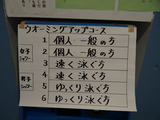 ウオーミングアップコース
1 個人 一般のみ
女子シャワー 2 個人 一般のみ
3 速く泳ぐろ
4 速く泳ぐろ
男子シャワー 5 ゆっくり泳ぐろ
6 ゆっくり泳ぐろ